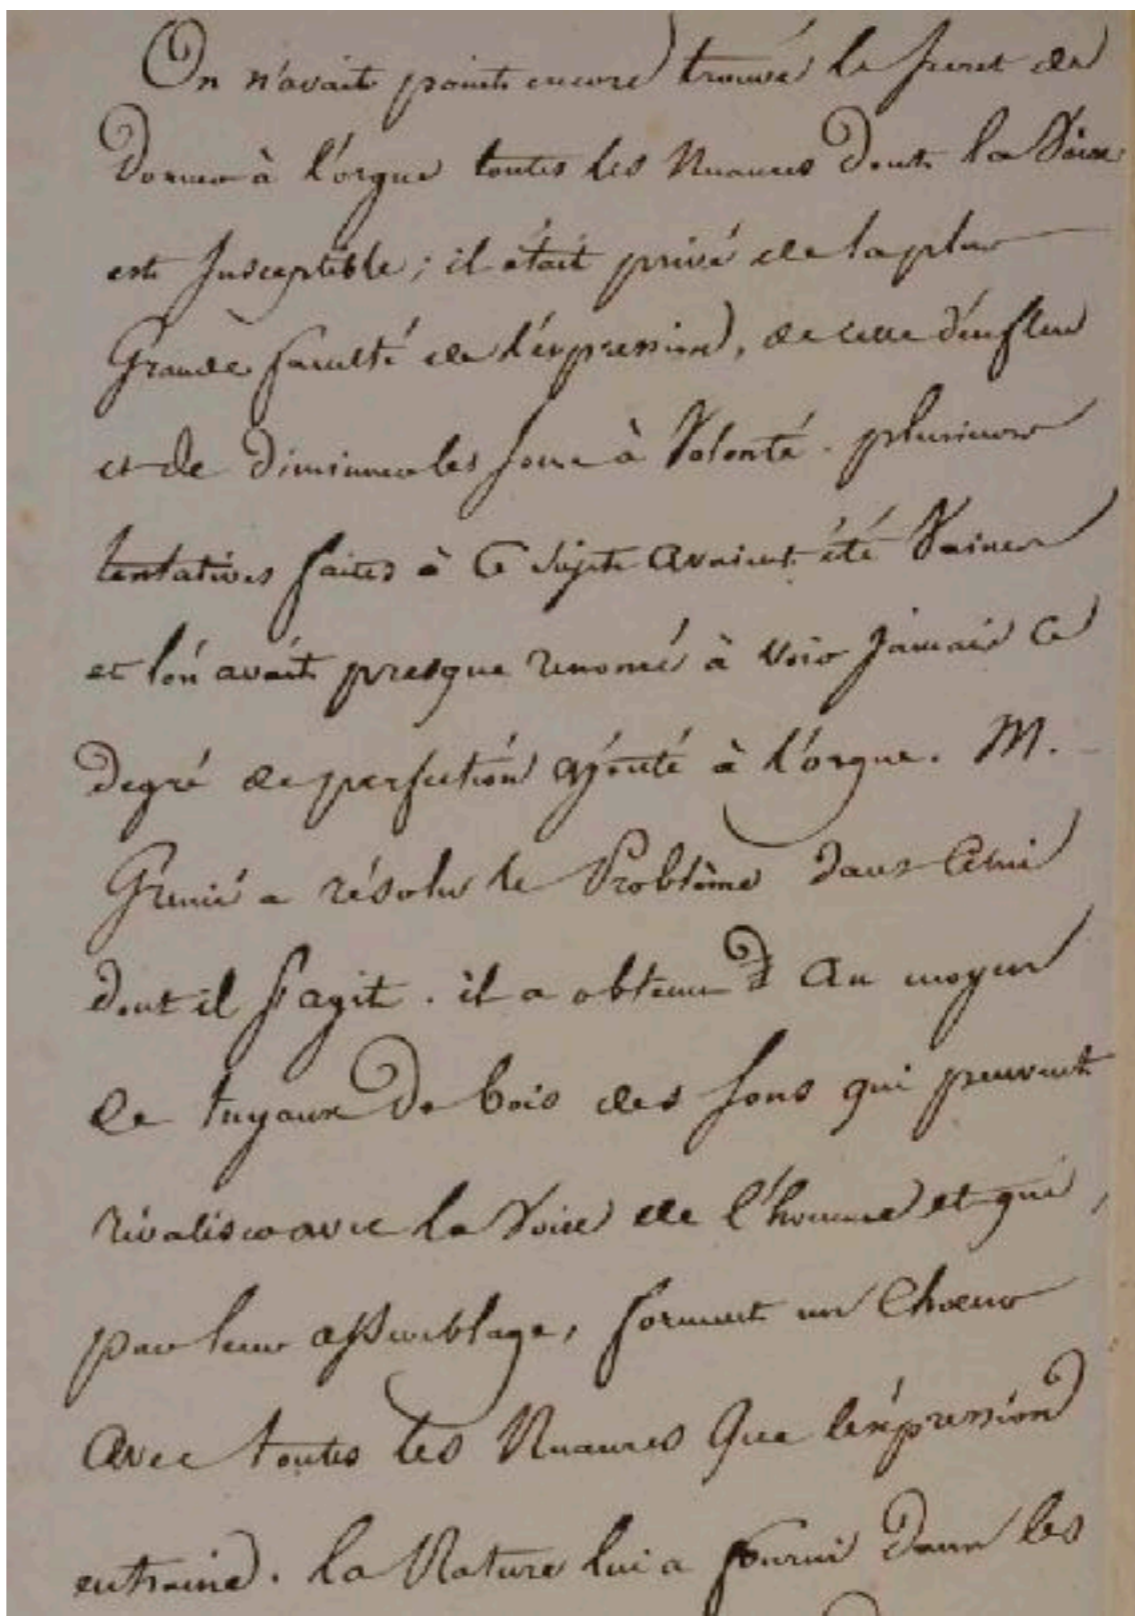 On n'avait point encore trouvé le secret de
donner à l'orgue toutes les Nuances dont la Voix
est susceptible; il était privé de la plus
Grande faculté de l'expression, de celle d'enfler
et de diminuer les sons à Volonté. plusieurs
tentatives faites à ce sujet avaient été Vaines
et l'on avait presque renoncé à voir jamais ce
degré de perfection ajouté à l'orgue. M.
Grenié a résolu le Problême dans celui
dont il s'agit. il a obtenu au moyen
de tuyaux de bois des sons qui peuvent
rivaliser avec la Voix de l'homme et qui,
par leur assemblage, forment un Chœur
avec toutes les Nuances que l'expression
entraine. la Nature lui a fourni dans les